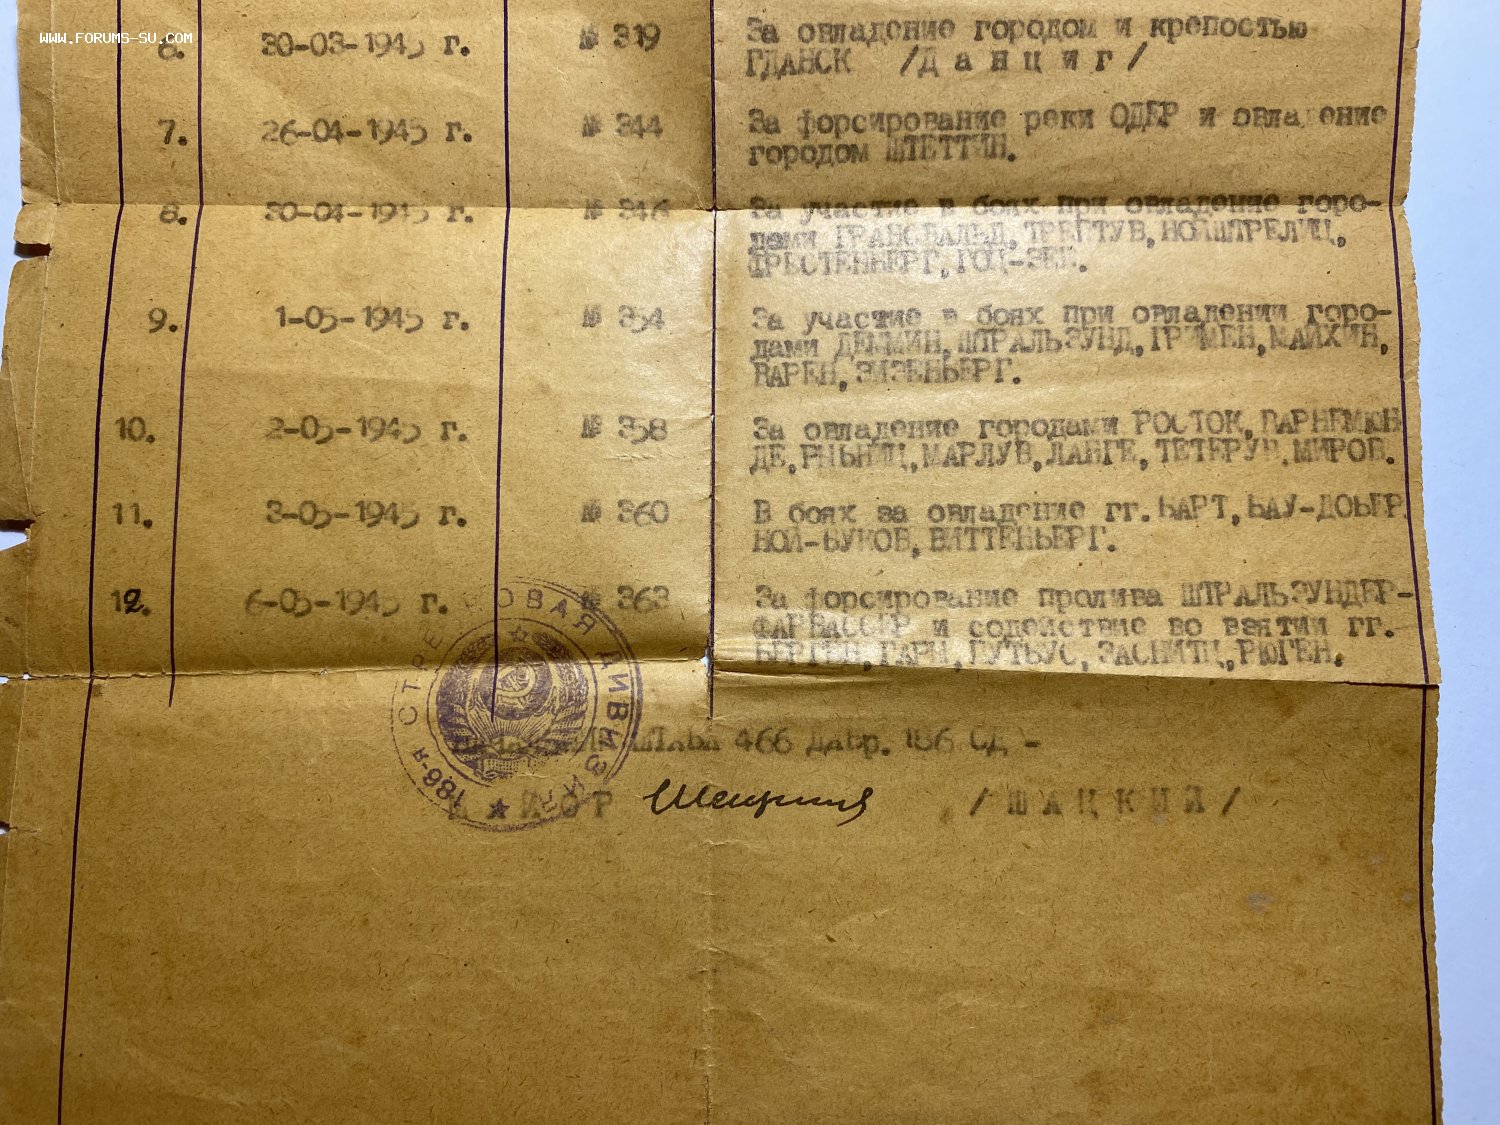 WWW.FORUMS-SU.COM
6. 30-03-1945 г. № 319 За овладение городом и крепостью
ГДАНСК /Д а н ц и г /
7. 26-04-1945 г. № 344 За форсирование реки ОДЕР и овладение
городом ШТЕТТИН.
8. 30-04-1945 г. № 346 За участие в боях при овладение горо-
дами ТРЕПТУВ, НОЙШТРЕЛИЦ,
9. 1-05-1945 г. № 354 За участие в боях при овладении горо-
дами ДЕММИН, ШТРАЛЬЗУНД, ГРИММЕН, МАЛХИН,
ВАРЕН, ЗИЗЕНБЕРГ.
10. 2-05-1945 г. № 358 За овладение городами РОСТОК, ВАРНЕМЮН-
ДЕ, МАРЛУВ, ЛАНГЕ, ТЕТЕРУВ, МИРОВ.
11. 3-05-1945 г. № 360 В боях за овладение гг. БАРТ, БАУ-ДОБЕР
НОЙ-БУКОВ, ВИТТЕНБЕРГ.
12. 6-05-1945 г. № 363 За форсирование пролива ШТРАЛЬЗУНДЕР-
ФАРВАССЕР и содействие во взятии гг.
БЕРГЕН, ГАРЦ, ПУТБУС, ЗАСНИТЦ, РЮГЕН.
186-я СТРЕЛКОВАЯ ДИВИЗИЯ
НАЧАЛЬНИК ШТАБА 466 ДАБр. 186 СД -
М А Й О Р Шацкий / Ш А Ц К И Й /